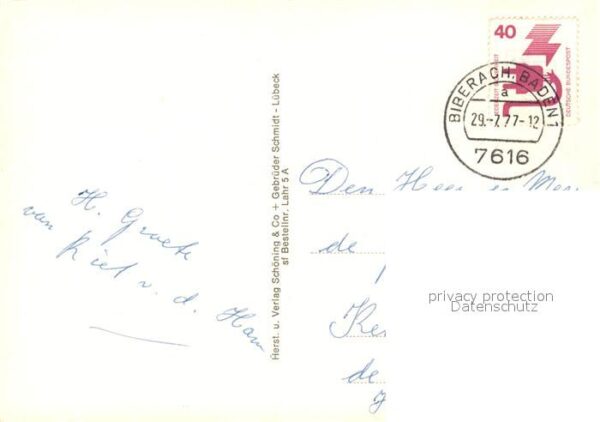 40
DEUTSCHE BUNDESPOST
BIBERACH, BADEN 1
a
29.-7.77-12
7616
H. Groete
van
Riet v. d. Ham
Herst. u. Verlag Schöning & Co + Gebrüder Schmidt - Lübeck
sf Bestellnr. Lahr 5 A
Den Heer en
de
de
privacy protection
Datenschutz